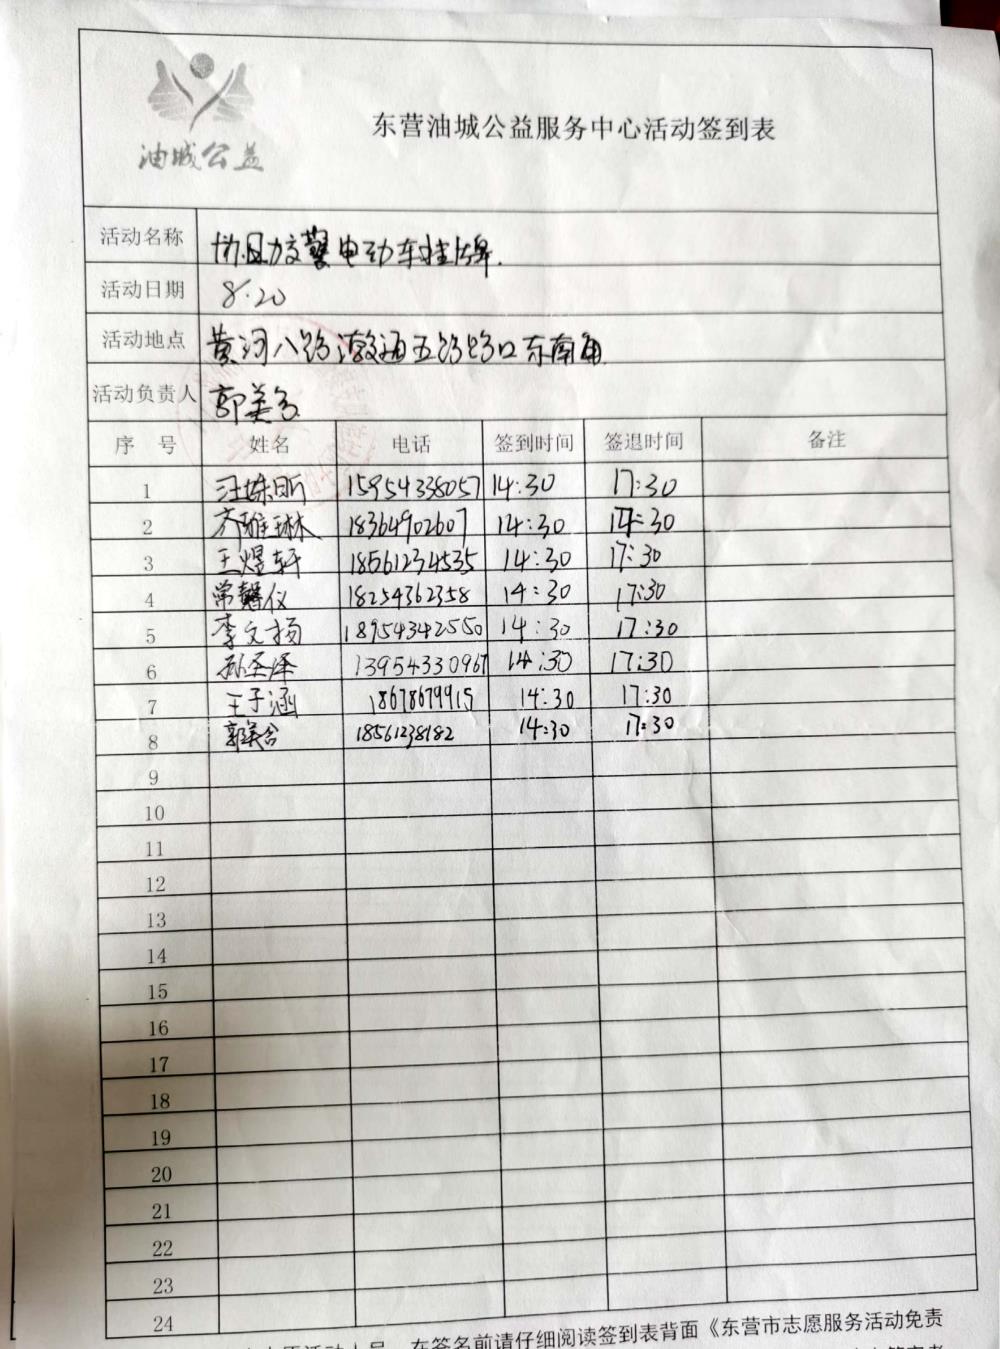 油城公益
东营油城公益服务中心活动签到表
活动名称 协助交警电动车挂牌.
活动日期 8.20
活动地点 黄河八路渤海五路路口东南角
活动负责人 郭美含
序号 姓名 电话 签到时间 签退时间 备注
1 汪姝昕 15954338057 14:30 17:30
2 齐雅琳 18364902607 14:30 17:30
3 王煜轩 18561234535 14:30 17:30
4 常馨仪 18254362358 14:30 17:30
5 李文扬 18954342550 14:30 17:30
6 孙圣泽 13954330967 14:30 17:30
7 王子涵 18678679915 14:30 17:30
8 郭美含 18561238182 14:30 17:30
9
10
11
12
13
14
15
16
17
18
19
20
21
22
23
24
在签名前请仔细阅读签到表背面《东营市志愿服务活动免责